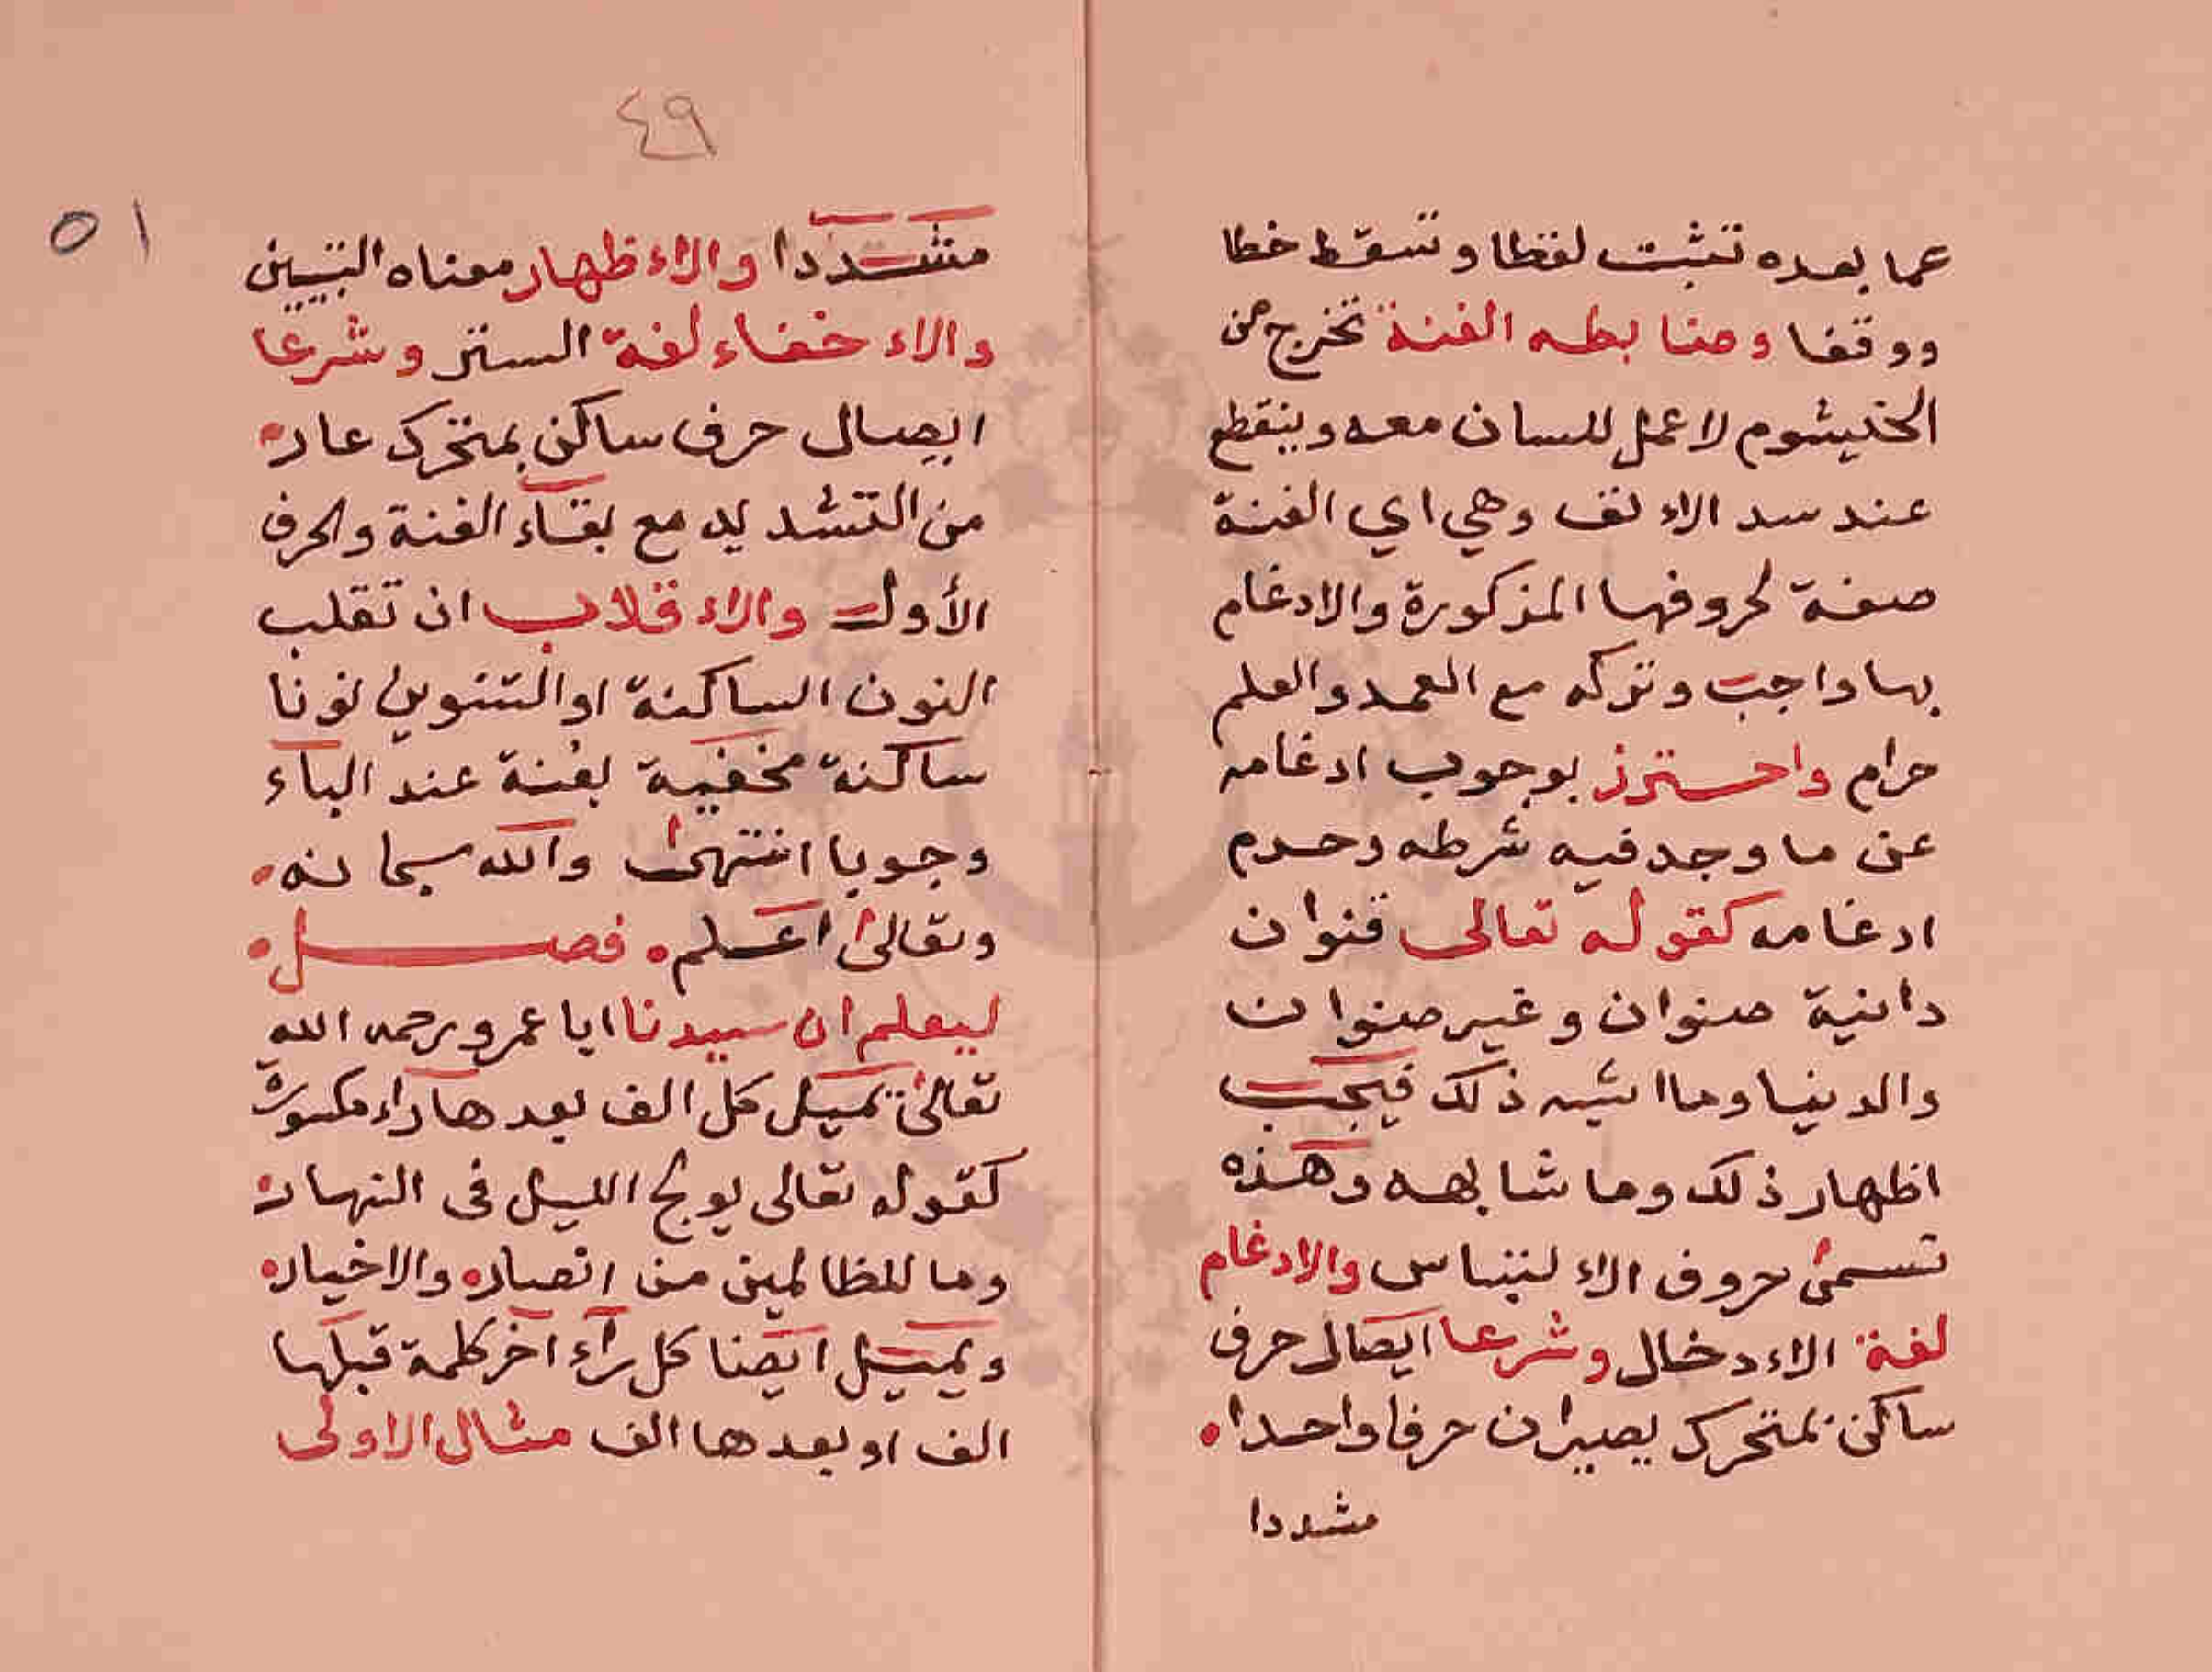 عما بعده تثبت لفظا وتسقط خطا
ووقفا وضابطه الغنة تخرج من
الخيشوم لا عمل للسان معه وينقطع
عند سد الاءنف وهي اي الغنة
صفة لحروفها المذكورة والادغام
بها واجب وتركه مع العمد والعلم
حرام واحترز بوجوب ادغامه
عن ما وجد فيه شرطه وحرم
ادغامه كقوله تعالى قنوان
دانية صنوان وغير صنوان
والدنيا وما اشبه ذلك فيجب
اظهار ذلك وما شابهه وهذه
تسمى حروف الاءلتباس والادغام
لغة الاءدخال وشرعا ايصال حرف
ساكن بمتحرك يصيران حرفا واحدا
مشددا
٤٩
٥١
مشددا والاءظهار معناه التبيين
والاءخفاء لغة الستر وشرعا
ايصال حرف ساكن بمتحرك عار
من التشديد مع بقاء الغنة والحرف
الأول والاءقلاب ان تقلب
النون الساكنة او التنوين نونا
ساكنة مخفية بغنة عند الباء
وجوبا انتهى والله سبحانه
وتعالى اعلم فصل
ليعلم ان سيدنا ابا عمرو رحمه الله
تعالى تميل كل الف بعدها راء مكسورة
كقوله تعالى يولج الليل في النهار
وما للظالمين من انصار والاخيار
ويميل ايضا كل راء اخر كلمة قبلها
الف او بعدها الف مثال الاولى